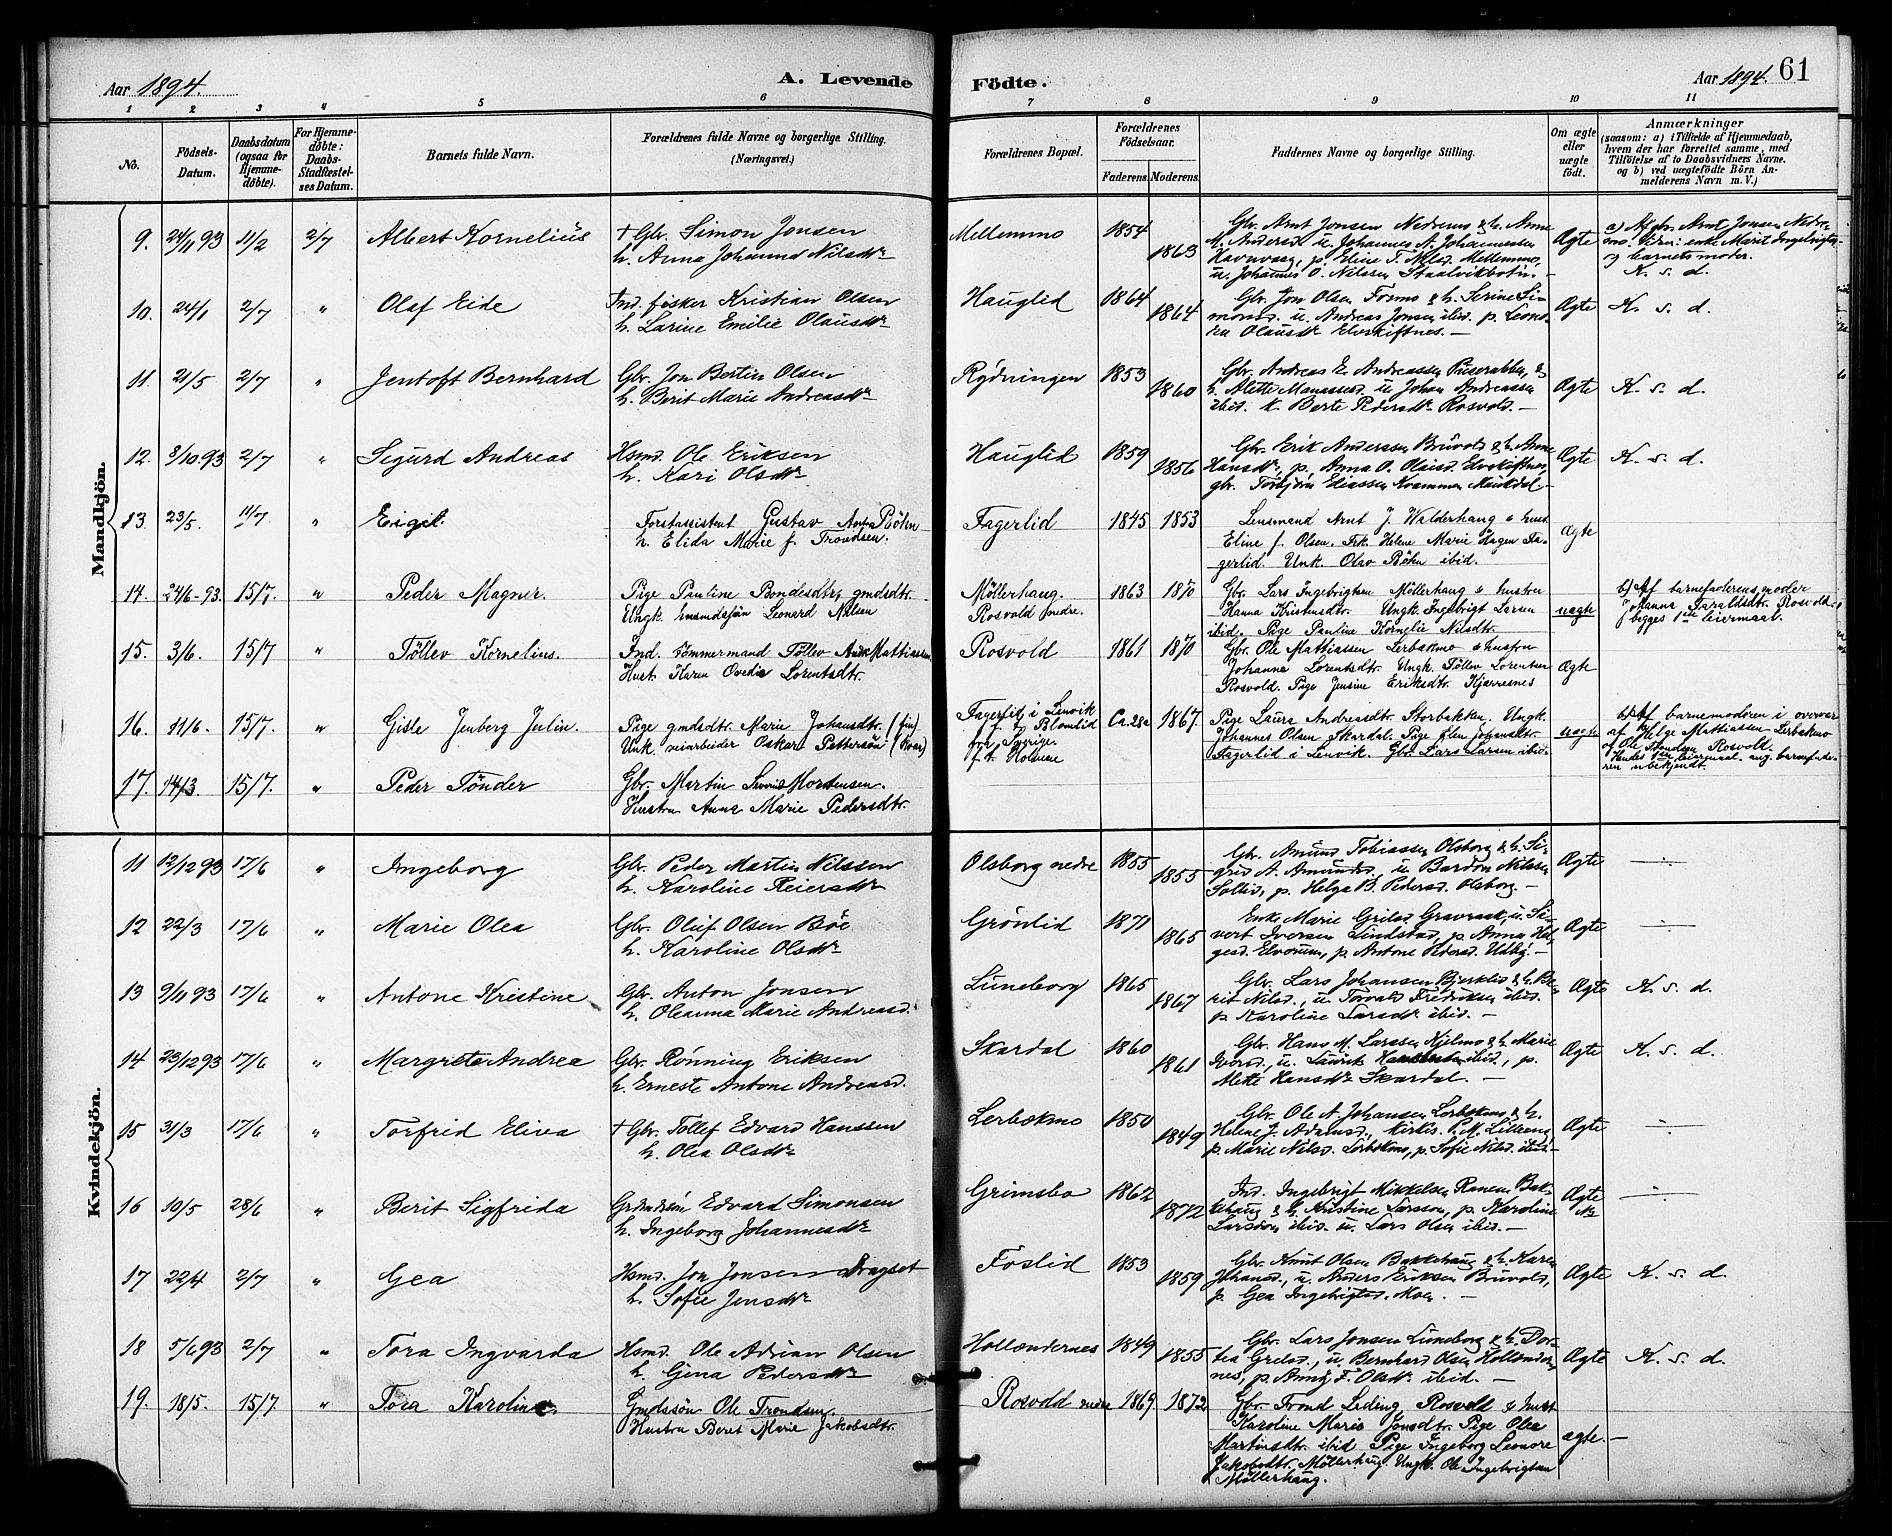 Aar 1894.
A. Levende
Födte.
Aar 1894. 61
1 2 3 4 5 6 7 8 9 10 11
No.
Födsels-
Datum.
Daabsdatum
(ogsaa for
Hjemme-
döbte).
For Hjemme-
döbte:
Daabs-
Stadfæstel-
ses Datum.
Barnets fulde Navn.
Forældrenes fulde Navne og borgerlige Stilling.
(Næringsvei.)
Forældrenes Bopæl.
Forældrenes
Födselsaar.
Faderens. Moderens.
Faddernes Navne og borgerlige Stilling.
Om ægte
eller
uægte
födt.
Anmærkninger
(saasom: a) i Tilfælde af Hjemmedaab,
hvem der har forrettet samme, med
Tilföielse af to Daabsvidners Navne,
og b) ved uægtefödte Börn An-
melderens Navn m. V.)
Mandkjön.
9. 24/11 93 11/2 2/7 Albert Kornelius
† Gbr. Simon Jonsen
h. Anna Johanna Nilsdr
Mellemmo 1854 1863
Gbr. Arnt Jonsen Nedremo & h. Anne
M. Andersd. u. Johannes A. Johannessen
Havnvaag, p. Eline T. Nilsd. Mellemmo,
u. Johannes O. Nilsen Staalvikbotn. –
Ægte
a) Af gbr. Arnt Jonsen Nedre-
mo. Vidn: enke Marit Ingebrigtsd.
og barnets moder.
K. s. d.
10. 24/1 2/7 " Olaf Eide
Ind. fisker Kristian Olsen
h. Larine Emilie Olausdr
Hauglid 1864 1864
Gbr. Jon Olsen Formo & h. Serine Si-
monsd. u. Andreas Jonsen ibid. p. Leono-
ra Olausdr Elveskiftnes. –
Ægte K. s. d.
11. 21/5 2/7 " Jentoft Bernhard
Gbr. Jon Bertin Olsen
h. Berit Marie Andreasdr
Rydningen 1853 1860
Gbr. Andreas E. Andreassen &
h. Alette Manassesd. u. Johan Andreassen
ibid. k. Berte Pedersdr Rosvold. –
Ægte K. s. d.
12. 8/10.93 2/7 " Sigurd Andreas
Hsmd. Ole Eriksen
h. Kari Olsdr
Hauglid 1859 1856
Gbr. Erik Anderssen Bruvold & h. Anne
Hansdr, p. Anna O. Olaisd. Elveskiftnes,
gbr. Torbjörn Eliassen Kvammen Maukdal. –
Ægte K. s. d.
13. 23/5. 11/7 " Eigil.
Forstassistent Gustav Böhn
h. Elida Marie f. Trondsen.
Fagerlid 1845 1853
Lensmand Arnt J. Walderhaug & hust.
Eline f. Olsen. Frk. Helene Marie Hagen Fa-
gerlid. Unk. Olav Böhn ibid.
Ægte
14. 24/6-93. 15/7. " Peder Magner.
Pige Pauline Bendesdtr gmdsdtr.
Ungk. husmdssön Leonard Nilsen
Möllerhaug.
Rosvold nedre. 1863 1870
Gbr. Lars Ingebrigtsen Möllerhaug & hustru
Hanna Kristensdtr. Ungk. Ingebrigt Larsen
ibid. Pige Pauline Kornelie Nilsdtr.
uægte
b) Af barnefaderens moder
Johanna Taraldsdtr. Rosvold.
begges 1ste leiermaal.
15. 3/6. 15/7 " Töllev Kornelius.
Ind. tömmermand Töllev Mattiassen.
Hust. Karen Ovedie Lorentsdtr.
Rosvold 1861 1870
Gbr. Ole Mattiassen Lerbakmo & hustru
Johanna Lorentsdtr. Ungk. Töllev Lorentsen
Rosvold. Pige Jensine Eriksdtr. Kjærresnes
Ægte
16. 11/6. 15/7. " Gisle Jenberg Julin.
Pige gmdsdtr. Marie Johansdtr. (fin)
Unk. veiarbeider Oskar Pettersön (kvæn)
Fagerlid i Lenvik
f. t. Blomlid
fra Sverige
f. t. Holmene
Ca. 28a 1867.
Pige Laura Andreasdtr. Storbakken. Ungk.
Johannes Olsen Skardal. Pige Elen Johansdtr
Fagerlid i Lenvik. Gbr. Lars Larsen ibid.
uægte
b) Af barnemoderen i overvær
af Helge Mattiassen Lerbakmo
og Ole Rosvold.
Hendes 1ste leiermaal. ang. barnefade-
ren ubekjendt.
17. 14/3. 15/7. " Peder Tönder
Gbr. Martin Severin Mortensen.
Hustru Anna Marie Pedersdtr.
Kvindekjön.
11 12/12 93 17/6 " Ingeborg
Gbr. Peder Martin Nilssen
h. Karoline Reiersdr
Olsborg nedre 1855 1855
Gbr. Amund Tobiassen Olsborg & h. Si-
grid A. Amundsd., u. Bardon Nilssen
Sollid, p. Helga B. Pedersd. Olsborg. –
Ægte –:–
12 22/3 17/6 " Marie Olea
Gbr. Oluf Olsen Böe
h. Karoline Olsdr
Grönlid 1871 1865
Enke Marie Grilsd. Gravraak, u. Si-
vert Iversen Lindstad, p. Anna Hel-
gesd. Elvorum, p. Antone Pedersd. Udby. –
Ægte –:–
13 9/11 93 17/6 " Antone Kristine
Gbr. Anton Jonsen
h. Oleanna Marie Andreasd.
Luneborg 1865 1867
Gbr. Lars Johansen Bjerklid & h. Be-
rit Nilsd., u. Torvald Fredriksen ibid.
p. Karoline Larsdr ibid. –
Ægte K. s. d.
14 23/12 93 17/6 " Margrete Andrea
Gbr. Rönning Eriksen
h. Erneste Antone Andreasd.
Skardal 1860 1861
Gbr. Hans M. Larssen Hjelmo & h. Marie
Iversd., u. Laurits ibid., p.
Mette Hansdr Skardal. –
Ægte K. s. d.
15 31/3 17/6 " Torfrid Eliva
† Gbr. Tollef Edvard Hanssen
h. Olea Olsdr
Lerbækmo 1850 1849
Gbr. Ole A. Johansen Lerbækmo & h.
Helene J. Adamsd., kirkes. P. M. Lilleeng
p. Marie Nilsd. Lerbækmo, p. Sofie Nilsd. ibid. –
Ægte –:–
16 10/5 28/6 " Berit Sigfrida
Grdmdsön Edvard Simonsen
h. Ingeborg Johannesdr
Grimsbo 1862 1872
Ind. Ingebrigt Mikkelsen Ranem Bak-
kehaug & h. Kristine Larsson, p. Karoline
Larsdon ibid. u. Lars Olsen ibid. –
Ægte –:–
17 22/4 2/7 " Gea
Hsmd. Jon Jonsen Dragset
h. Sofie Jensdr
Foslid 1853 1859
Gbr. Knut Olsen Bakkehaug & h. Karen
Johansd., u. Anders Eriksen Bruvold,
p. Gea Ingebrigtsd. Moen. –
Ægte K. s. d.
18 5/6 93 2/7 " Tora Ingvarda
Hsmd. Ole Adrian Olsen
h. Gjena Pedersdr
Hollændernes 1849 1855
Gbr. Lars Jonsen Luneborg & h. Dor-
tea Grelsd., u. Bernhard Olsen Hollænder-
nes, p. Anna F. Olsdr ibid. –
Ægte K. s. d.
19. 18/5. 15/7. " Tora Karoline.
Gmdssön Ole Trondsen.
Hustru Beret Marie Jakobsdtr.
Rosvold nedre 1869. 1872.
Gbr. Trond Leding Rosvold & hust.
Karoline Marie Jonsdtr. Pige Olea
Martinsdtr. ibid. Pige Ingeborg Leonore
Jakobsdtr. Möllerhaug. Ungk. Ole Ingebrigtsen
Möllerhaug.
ægte. –